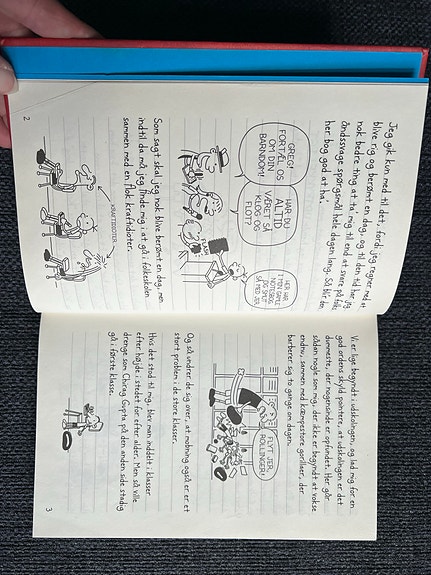 Jeg gik kun med til det, fordi jeg regner med at
blive rig og berømt en dag, og til den tid har jeg
nok bedre ting at ta' mig til end at svare på folks
åndssvage spørgsmål hele dagen lang. Så blir den
her bog god at ha'.
GREG!
FORTÆL OS
OM DIN
BARNDOM!
HAR DU
ALTID
VÆRET SÅ
KLOG OG
FLOT?
HER HAR
I MIN GAMLE
NOTESBOG.
OG SKUT
SÅ MED JER.
FLASH
Som sagt skal jeg nok blive berømt en dag, men
indtil da må jeg finde mig i at gå i folkeskolen
sammen med en flok kraftidioter.
KRAFTIDIOTER
2
Vi er lige begyndt i udskolingen, og lad mig for en
god ordens skyld pointere, at udskolingen er det
dummeste, der nogensinde er opfundet. Her går
sådan nogle som mig, der ikke er begyndt at vokse
endnu, sammen med kæmpestore gorillaer, der
barberer sig to gange om dagen.
FLYT JER,
ROLLINGER!
Og så undrer de sig over, at mobning også er et
stort problem i de store klasser.
Hvis det stod til mig, blev man inddelt i klasser
efter højde i stedet for efter alder. Men så ville
drenge som Chirag Gupta på den anden side stadig
gå i første klasse.
3